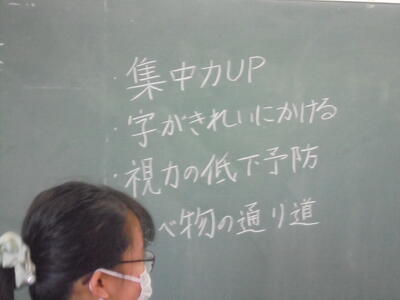 ・集中力UP
・字がきれいにかける
・視力の低下予防
べ物の通り道